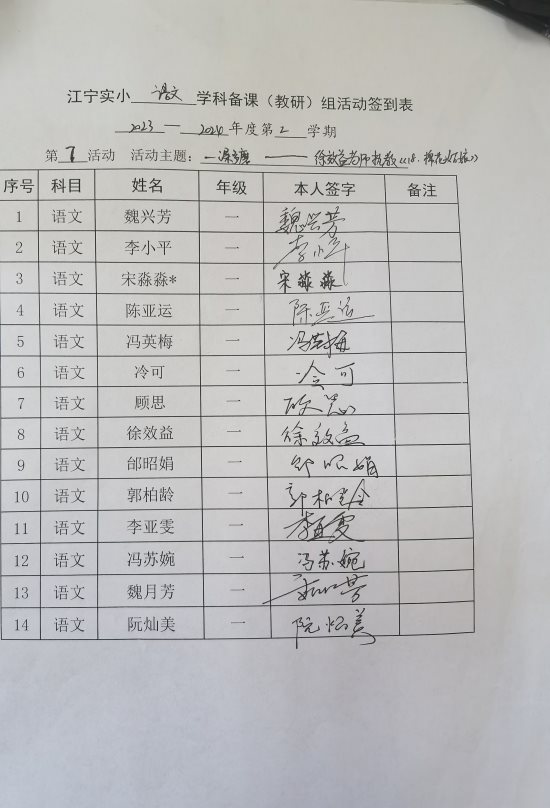 江宁实小 语文 学科备课（教研）组活动签到表
2023 — 2024 年度第 2 学期
第 7 活动 活动主题： —— 徐效益老师执教《18.棉花姑娘》
序号 科目 姓名 年级 本人签字 备注
1 语文 魏兴芳 一 魏兴芳
2 语文 李小平 一 李小平
3 语文 宋淼淼* 一 宋淼淼
4 语文 陈亚运 一 陈亚运
5 语文 冯英梅 一 冯英梅
6 语文 冷可 一 冷可
7 语文 顾思 一 顾思
8 语文 徐效益 一 徐效益
9 语文 邰昭娟 一 邰昭娟
10 语文 郭柏龄 一 郭柏龄
11 语文 李亚雯 一 李亚雯
12 语文 冯苏婉 一 冯苏婉
13 语文 魏月芳 一
14 语文 阮灿美 一 阮灿美